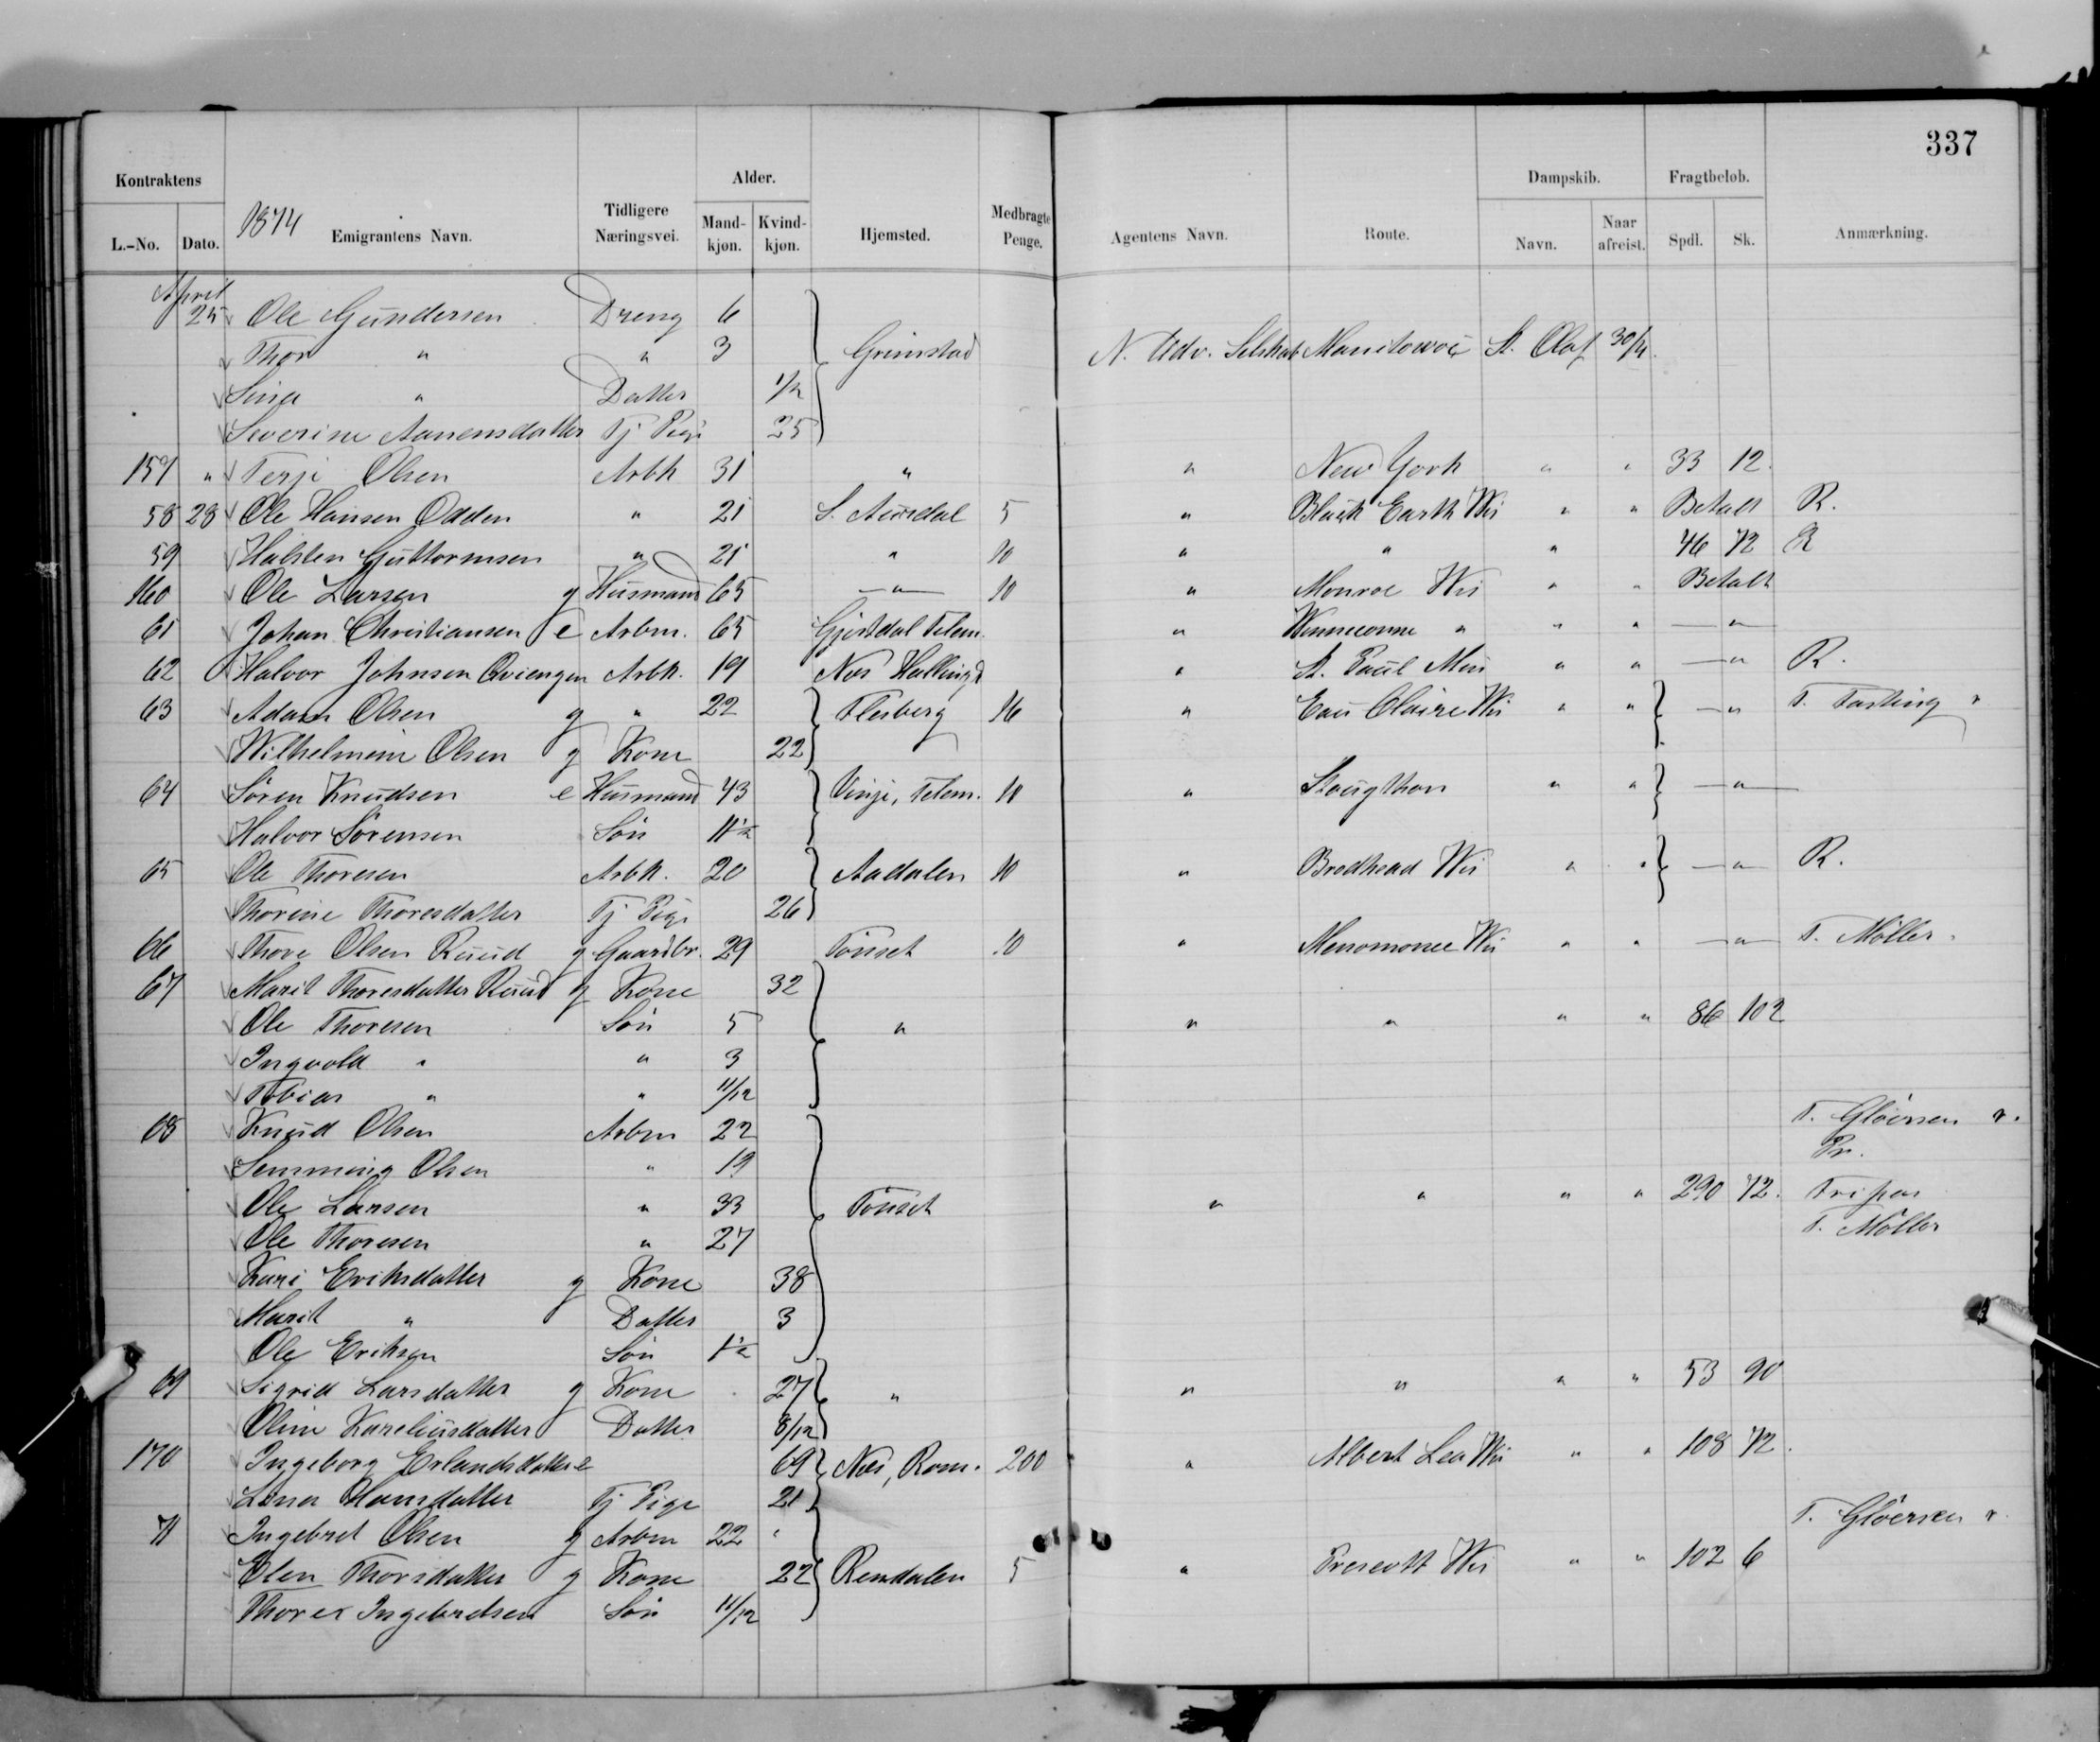 337
Kontraktens Alder. Dampskib. Fragtbeløb.
L.-No. Dato. 1874 Emigrantens Navn. Tidligere Næringsvei. Mand-kjøn. Kvind-kjøn. Hjemsted. Medbragte Penge. Agentens Navn. Route. Navn. Naar afreist. Spdl. Sk. Anmærkning.
April
25 Ole Gundersen Dreng 6
Thor " " 3 Grimstad N. Udv. Selskab Manitowoc St. Olaf 30/4
Sina " Datter 1/2
Severine Aanensdatter Tj Pige 25
157 " Terje Olsen Arbk 31 " " New York " " 33 12
58 28 Ole Hansen Odden " 21 S. Aursdal 5 " Black Earth Wis " " Betalt R.
59 Halsten Guttormsen " 21 " 10 " " " 46 72 R
160 Ole Larsen g Husmand 65 " 10 " Monroe Wis " " Betalt
61 Johan Christiansen e Arbm. 65 Gjerdal Telem. " Winneconne " " " "
62 Halvor Johnsen Qviengen Arbk. 19 Nes Hallingd " St. Paul Min " " " R.
63 Adam Olsen g " 22 Flesberg 16 " Eau Claire Wis " " " T. Fasting r
Wilhelmine Olsen g Kone 22
64 Søren Knudsen e Husmand 43 Vinje, Telem. 10 " Stougthon " " "
Halvor Sørensen Søn 11 1/2
65 Ole Thoresen Arbk. 20 Aadalen 10 " Brodhead Wis " " " R.
Thorine Thoresdatter Tj Pige 26
66 Thore Olsen Ruud g Gaardbr. 29 Tønset 10 " Menomonee Wis " " " T. Møller.
67 Marit Thoresdatter Ruud g Kone 32
Ole Thoresen Søn 5 " " " " " 86 102
Ingvold " " 3
Tobias " " 11/12
68 Knud Olsen Arbm 22 T. Gløersen r.
Semming Olsen " 19 Pr.
Ole Larsen " 33 Tønset " " " " 290 72. Fripas
Ole Thoresen " 27 T. Møller
Kari Eriksdatter g Kone 38
Marit " Datter 3
Ole Eriksen Søn 1 1/2
69 Sigrid Larsdatter g Kone 27 " " " " " 53 90
Oline Kareliusdatter Datter 8/12
170 Ingeborg Erlandsdatter e 69 Nes, Rom. 200 " Albert Lea Wis " " 108 72
Lena Hansdatter Tj Pige 21
71 Ingebret Olsen g Arbm 22 T. Gløersen r.
Elen Thorsdatter g Kone 22 Rendalen 5 " Prescott Wis " " 102 6
Thorer Ingebretsen Søn 11/12